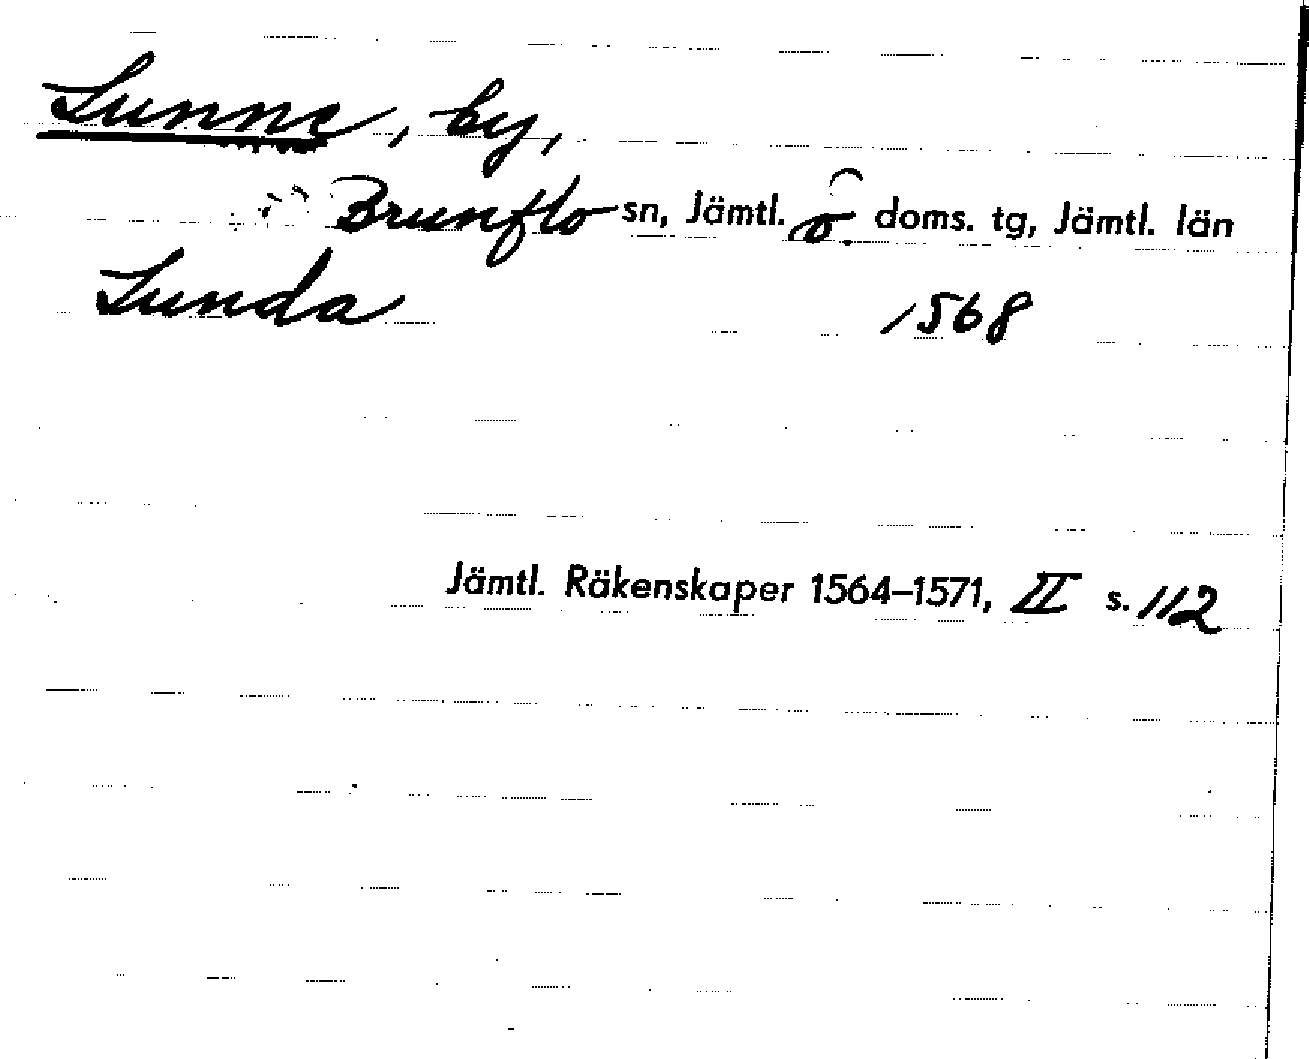 Lunne, by,
Brunflo sn, Jämtl. ö. doms. tg, Jämtl. län
Lunda 1568
Jämtl. Räkenskaper 1564–1571, II s. 112